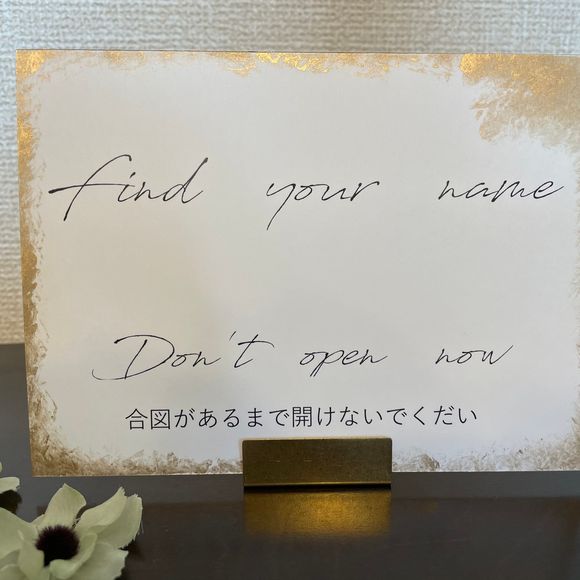 find your name
Don't open now
合図があるまで開けないでくだい